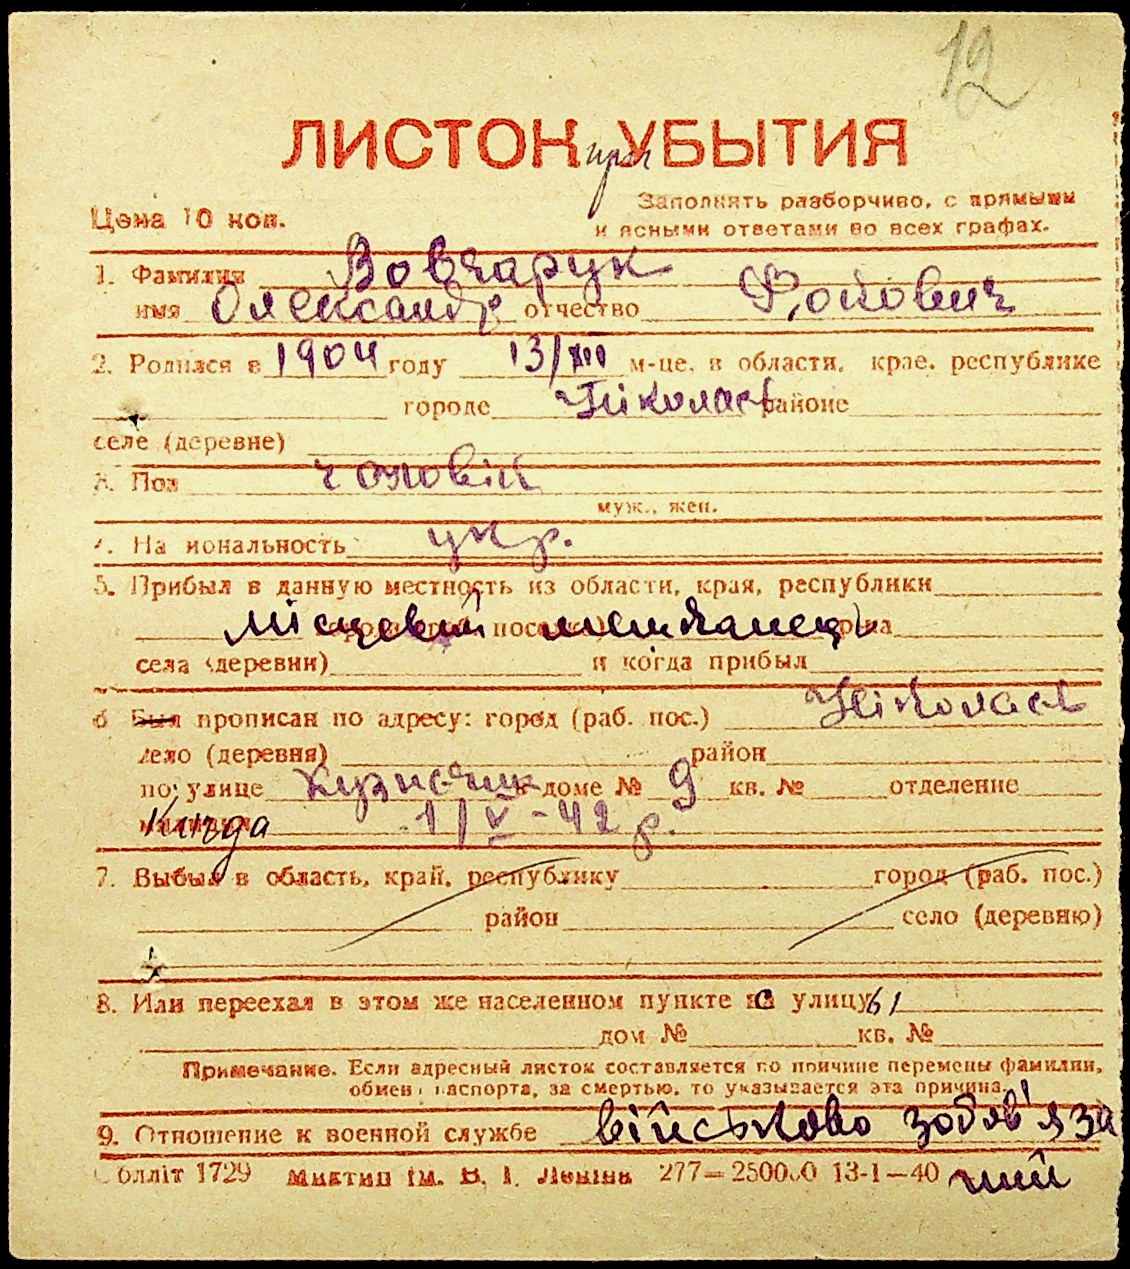 12
ЛИСТОК при УБЫТИЯ
Цена 10 коп.
Заполнять разборчиво, с прямыми
и ясными ответами во всех графах.
1. Фамилия Вовчарук
имя Олександр отчество
2. Родился в 1904 году 13/XII м-це, в области, крае, республике
городе Ніколаєв районе
селе (деревне)
3. Пол чоловік
муж., жен.
4. Национальность укр.
5. Прибыл в данную местность из области, края, республики
місцевий мешканець района
села (деревни) и когда прибыл
6 Был прописан по адресу: город (раб. пос.) Ніколаєв
село (деревня) район
по улице Кузнечн доме № 9 кв. № отделение
милиции 1/V-42 р.
7. Выбыл в область, край, республику город (раб. пос.)
район село (деревню)
8. Или переехал в этом же населенном пункте с улицы
дом № кв. №
Примечание. Если адресный листок составляется по причине перемены фамилии,
обмена паспорта, за смертью, то указывается эта причина.
9. Отношение к военной службе військово зобов'яза
Облліт 1729 Миктип ім. В. І. Леніна 277—25000 13-1—40 ний